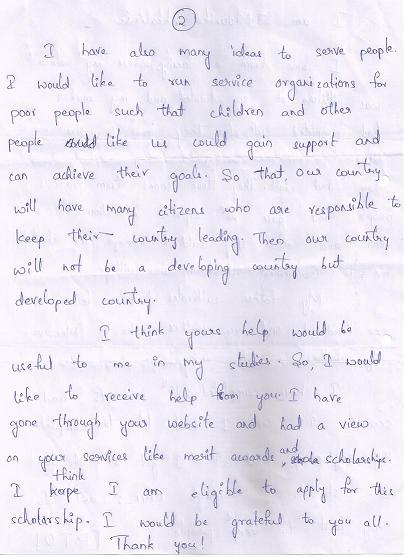 2
I have also many ideas to serve people.
I would like to run service organizations for
poor people such that children and other
people like us could gain support and
can achieve their goals. So that, our country
will have many citizens who are responsible to
keep their country leading. Then our country
will not be a developing country but
developed country.
I think yours help would be
useful to me in my studies. So, I would
like to receive help from you. I have
gone through your website and had a view
on your services like merit awards and scholarships.
I think I am eligible to apply for this
scholarship. I would be grateful to you all.
Thank you!